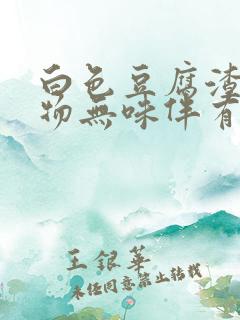 白色豆腐渣
物無味伴有
王銀華
未经同意禁止转载